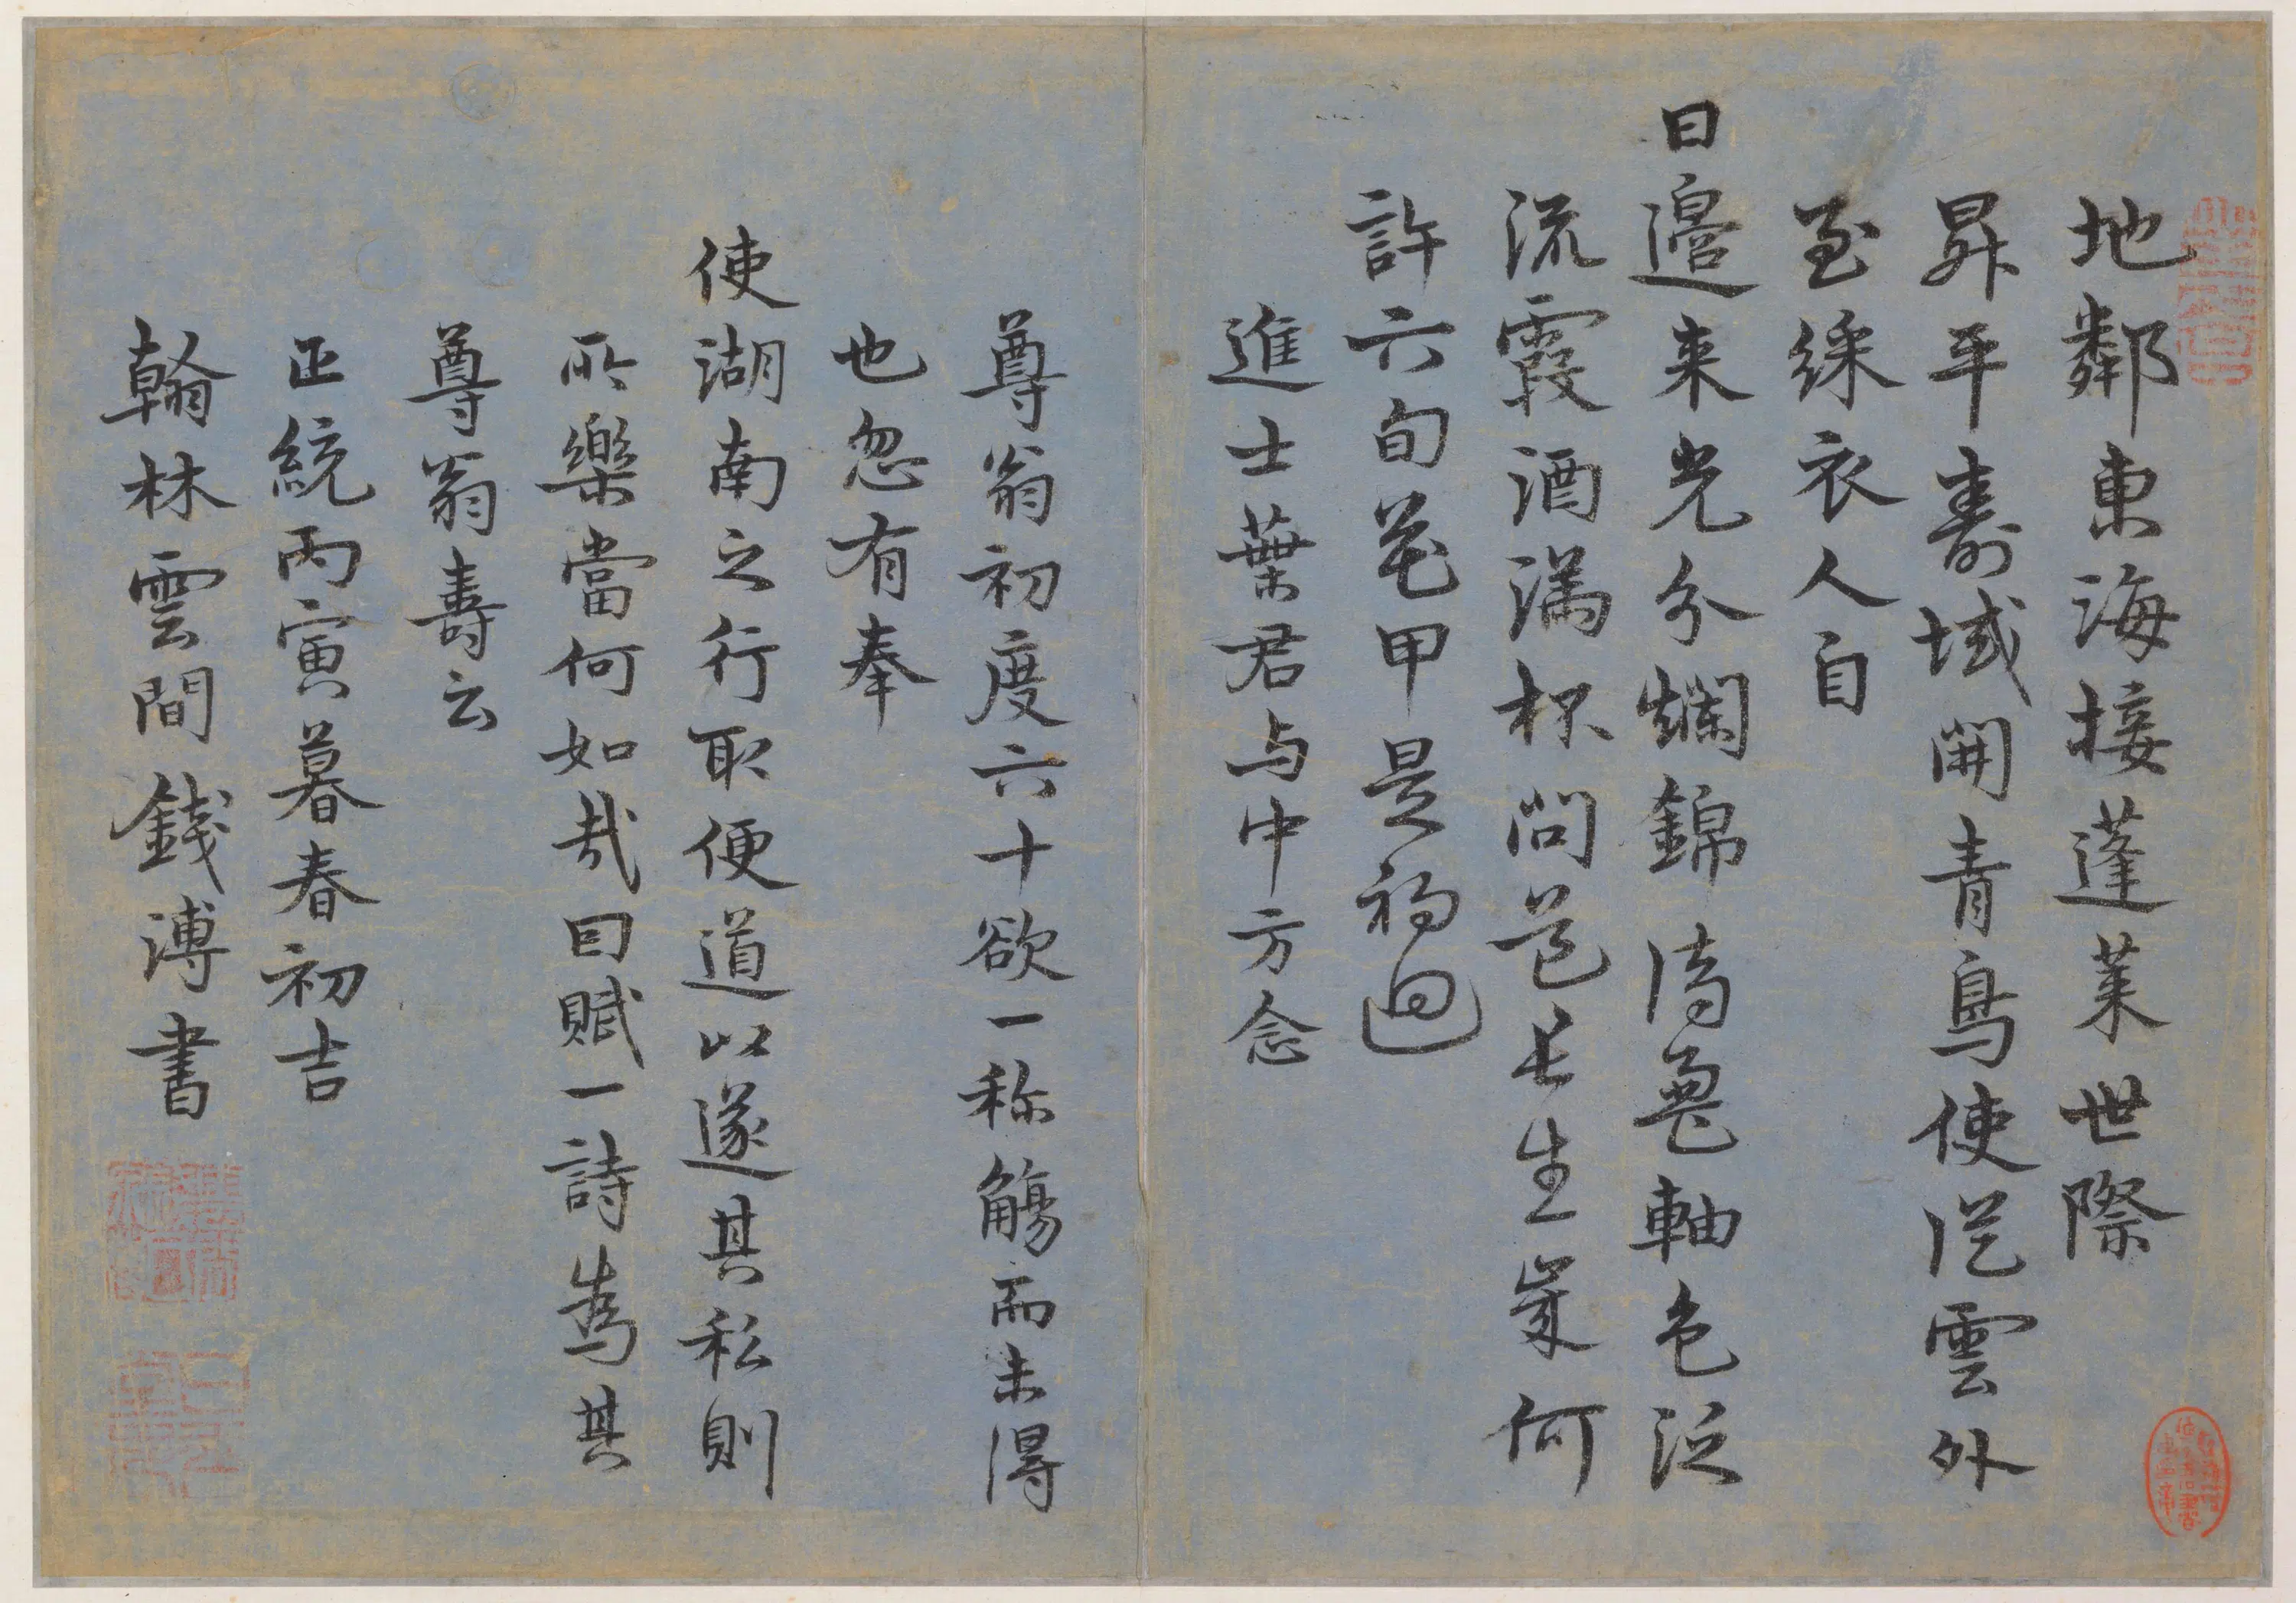 地鄰東海接蓬萊世際
昇平壽域開青鳥使從雲外
至綵衣人自
日邊来光分爛錦瀆鸞軸色泛
流霞酒滿杯问花長生歲何
許六旬花甲是初迴
進士葉君与中方念
尊翁初度六十欲一称觴而未得
也忽有奉
使湖南之行取便道以遂其私則
所樂當何如哉因賦一詩為其
尊翁壽云
正統丙寅暮春初吉
翰林雲間錢溥書